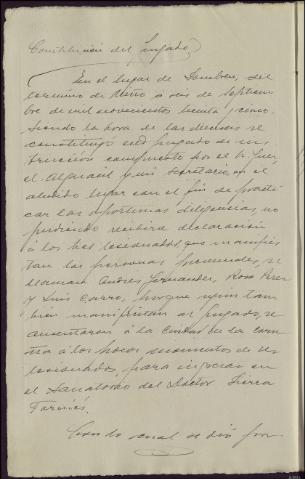 Constitución del Juzgado
En el lugar de Sambreu, del
término de Miño a seis de Septiem
bre de mil novecientos treinta y cinco.
Siendo la hora de las dieciseis se
constituyó este Juzgado de ins
trucción compuesto por el Sr. Juez,
el Alguacil y mi Secretario, en el
aludido lugar con el fin de practi
car las oportunas diligencias, no
pudiendo recibir declaración
á los tres lesionados que manifies
tan las personas presentes, se
llaman Andres Fernandez, Rosa Perez
y Luis Carro, porque según tam
bien manifiestan al Juzgado, se
ausentaron á la Ciudad de la Coru
ña á los pocos momentos de
lesionados, para ingresar en
el Sanatorio del Doctor Sierra
Con lo cual se dió por